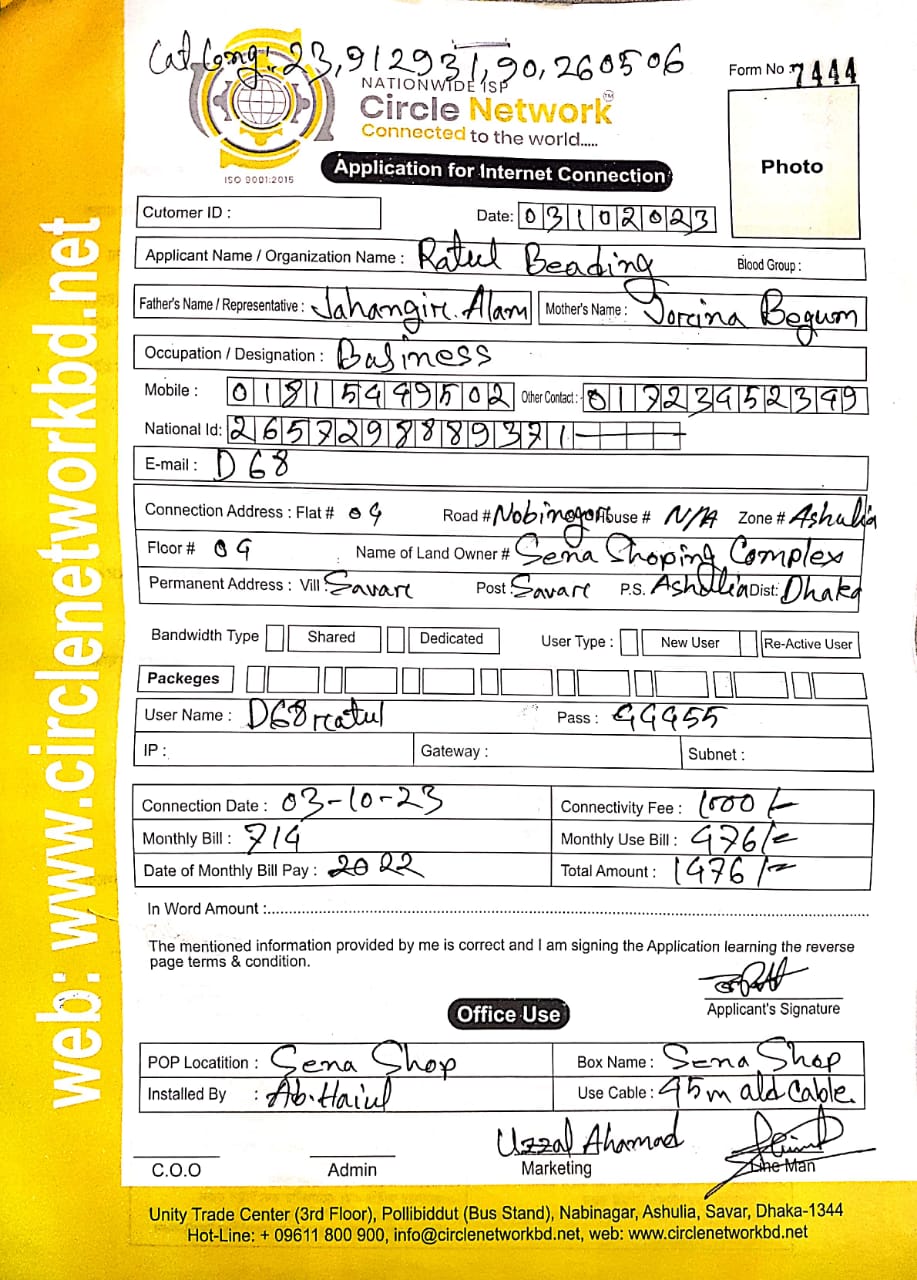 Cat Long: 23,912931,90,260506
Form No : 7444
NATIONWIDE ISP
Circle Network™
Connected to the world.....
ISO 9001:2015
Application for Internet Connection
Photo
Cutomer ID :
Date: 03102023
Applicant Name / Organization Name : Ratul Beading Blood Group :
Father's Name / Representative : Jahangir Alam Mother's Name : Jorcina Begum
Occupation / Designation : Business
Mobile : 01815499502 Other Contact : 01723452349
National Id: 2657298889371
E-mail : D68
Connection Address : Flat # 04 Road # Nobinogor House # N/A Zone # Ashulia
Floor # 04 Name of Land Owner # Sena Shoping Complex
Permanent Address : Vill : Savar Post : Savar P.S. Ashulia Dist: Dhaka
Bandwidth Type Shared Dedicated User Type : New User Re-Active User
Packeges
User Name : D68ratul Pass : 44455
IP : Gateway : Subnet :
Connection Date : 03-10-23 Connectivity Fee : 1000/-
Monthly Bill : 714 Monthly Use Bill : 476/=
Date of Monthly Bill Pay : 2022 Total Amount : 1476/=
In Word Amount :
The mentioned information provided by me is correct and I am signing the Application learning the reverse
page terms & condition.
Applicant's Signature
Office Use
POP Locatition : Sena Shop Box Name : Sena Shop
Installed By : Ab. Haiul Use Cable : 45m ald Cable.
Uzzal Ahamad
C.O.O Admin Marketing Line Man
Unity Trade Center (3rd Floor), Pollibiddut (Bus Stand), Nabinagar, Ashulia, Savar, Dhaka-1344
Hot-Line: + 09611 800 900, info@circlenetworkbd.net, web: www.circlenetworkbd.net
web: www.circlenetworkbd.net